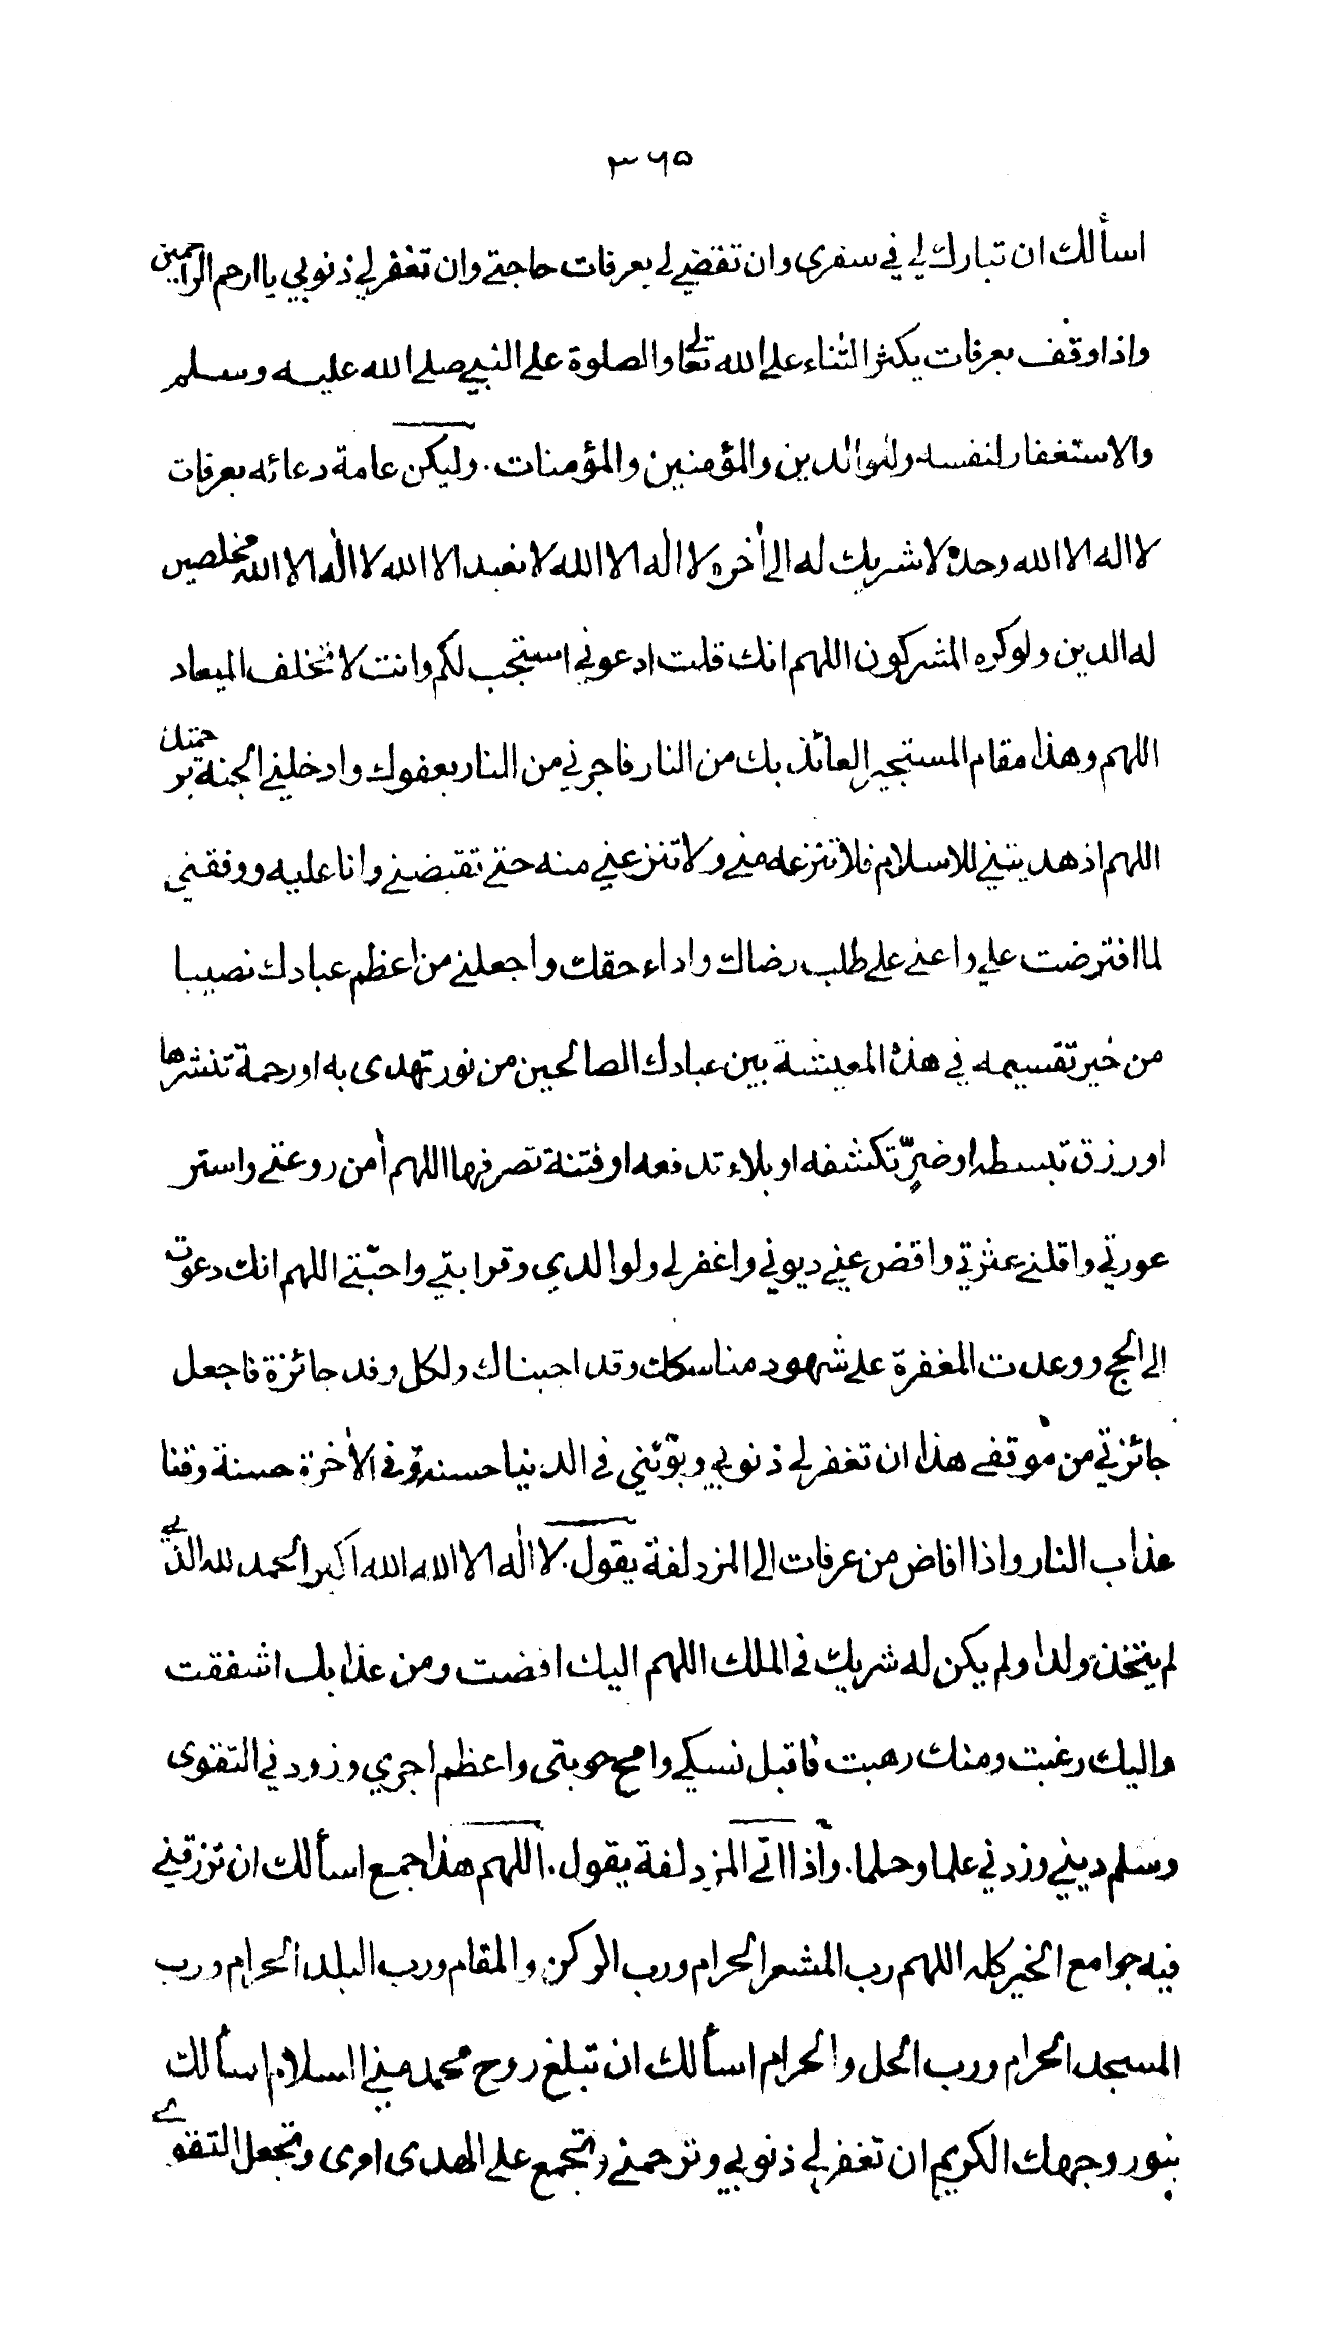 ٣٦٥
اسألك ان تبارك لي في سفري وان تقضي لي بعرفات حاجتي وان تغفر لي ذنوبي يا ارحم الراحمين
واذا وقف بعرفات يكثر الثناء على الله تعالى والصلوة على النبي صلى الله عليه وسلم
والاستغفار لنفسه ولوالدين والمؤمنين والمؤمنات. وليكن عامة دعائه بعرفات
لا اله الا الله وحده لا شريك له الى أخره لا اله الا الله لا نعبد الا الله لا اله الا الله مخلصين
له الدين ولو كره المشركون اللهم انك قلت ادعوني استجب لكم وانت لا تخلف الميعاد
اللهم وهذا مقام المستجير العائذ بك من النار فاجرني من النار بعفوك وادخلني الجنة برحمتك
اللهم اذ هديتني للاسلام فلا تنزعه مني ولا تنزعني منه حتى تقبضني وانا عليه ووفقني
لما افترضت علي واعني على طلب رضاك واداء حقك واجعلني من اعظم عبادك نصيبا
من خير تقسيمه في هذه المعيشة بين عبادك الصالحين من نور تهدى به او رحمة تنشرها
او رزق تبسطه او ضرّ تكشفه او بلاء تدفعه او فتنة تصرفها اللهم أمن روعتي واستر
عورتي واقلني عثرتي واقض عني ديوني واغفر لي ولوالدي وقرابتي واحبّتي اللهم انك دعوت
الى الحج ووعدت المغفرة على شهود مناسكك وقد اجبناك ولكل وفد جائزة فاجعل
جائزتي من موقفي هذا ان تغفر لي ذنوبي وبوّئني في الدنيا حسنة وفي الأخرة حسنة وقنا
عذاب النار واذا افاض من عرفات الى المزدلفة يقول. لا اله الا الله الله اكبر الحمد لله الذي
لم يتخذ ولدا ولم يكن له شريك في الملك اللهم اليك افضت ومن عذابك اشفقت
واليك رغبت ومنك رهبت فاقبل نسكي وامح حوبتي واعظم اجري وزودني التقوى
وسلم ديني وزدني علما وحلما. واذا اتى المزدلفة يقول. اللهم هذا جمع اسألك ان ترزقني
فيه جوامع الخير كله اللهم رب المشعر الحرام ورب الركن والمقام ورب البلد الحرام ورب
المسجد الحرام ورب الحل والحرام اسألك ان تبلغ روح محمد مني السلام اسألك
بنور وجهك الكريم ان تغفر لي ذنوبي وترحمني وتجمع على الهدى امرى وتجعل التقوى